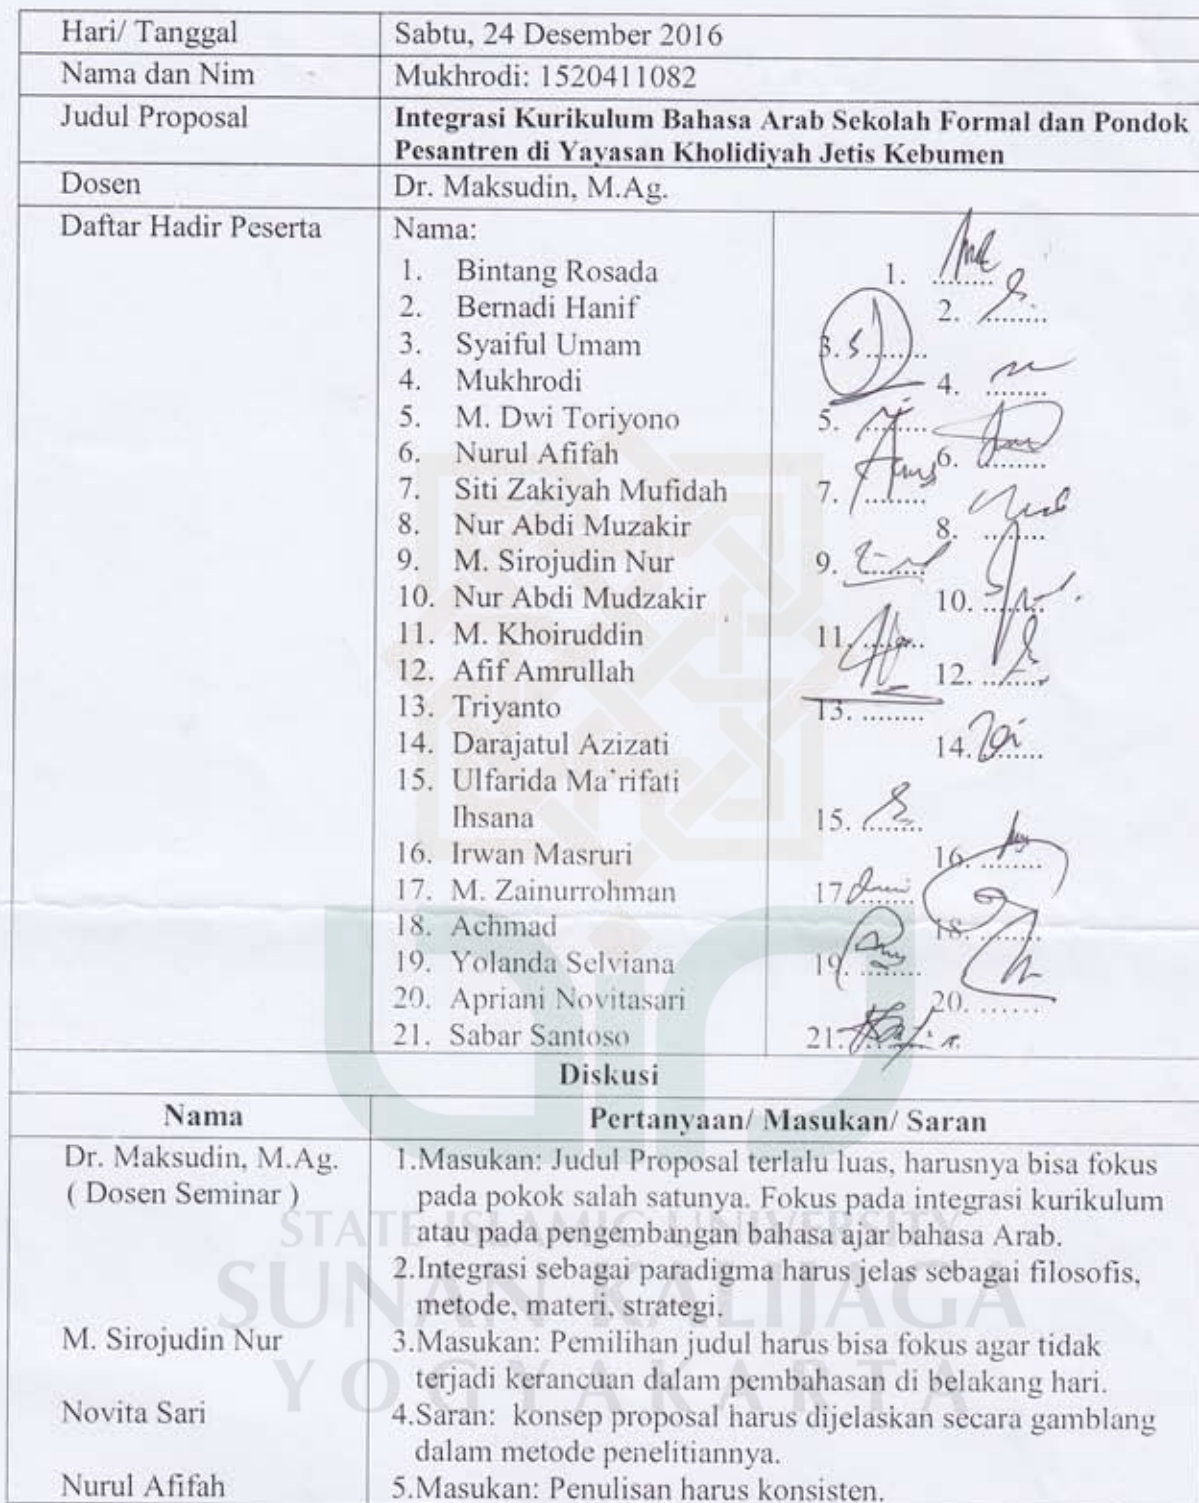 Hari/ Tanggal
Sabtu, 24 Desember 2016
Nama dan Nim
Mukhrodi: 1520411082
Judul Proposal
Integrasi Kurikulum Bahasa Arab Sekolah Formal dan Pondok
Pesantren di Yayasan Kholidiyah Jetis Kebumen
Dosen
Dr. Maksudin, M.Ag.
Daftar Hadir Peserta
Nama:
1. Bintang Rosada
2. Bernadi Hanif
3. Syaiful Umam
4. Mukhrodi
5. M. Dwi Toriyono
6. Nurul Afifah
7. Siti Zakiyah Mufidah
8. Nur Abdi Muzakir
9. M. Sirojudin Nur
10. Nur Abdi Mudzakir
11. M. Khoiruddin
12. Afif Amrullah
13. Triyanto
14. Darajatul Azizati
15. Ulfarida Ma'rifati
Ihsana
16. Irwan Masruri
17. M. Zainurrohman
18. Achmad
19. Yolanda Selviana
20. Apriani Novitasari
21. Sabar Santoso
1. ........
2. ........
3. ........
4. ........
5. ........
6. ........
7. ........
8. ........
9. ........
10. ........
11. ........
12. ........
13. ........
14. ........
15. ........
16. ........
17. ........
18. ........
19. ........
20. ......
21. ........
Diskusi
Nama
Pertanyaan/ Masukan/ Saran
Dr. Maksudin, M.Ag.
( Dosen Seminar )
1.Masukan: Judul Proposal terlalu luas, harusnya bisa fokus
pada pokok salah satunya. Fokus pada integrasi kurikulum
atau pada pengembangan bahasa ajar bahasa Arab.
2.Integrasi sebagai paradigma harus jelas sebagai filosofis,
metode, materi, strategi.
M. Sirojudin Nur
3.Masukan: Pemilihan judul harus bisa fokus agar tidak
terjadi kerancuan dalam pembahasan di belakang hari.
Novita Sari
4.Saran: konsep proposal harus dijelaskan secara gamblang
dalam metode penelitiannya.
Nurul Afifah
5.Masukan: Penulisan harus konsisten.
STATE ISLAMIC UNIVERSITY
SUNAN KALIJAGA
YOGYAKARTA